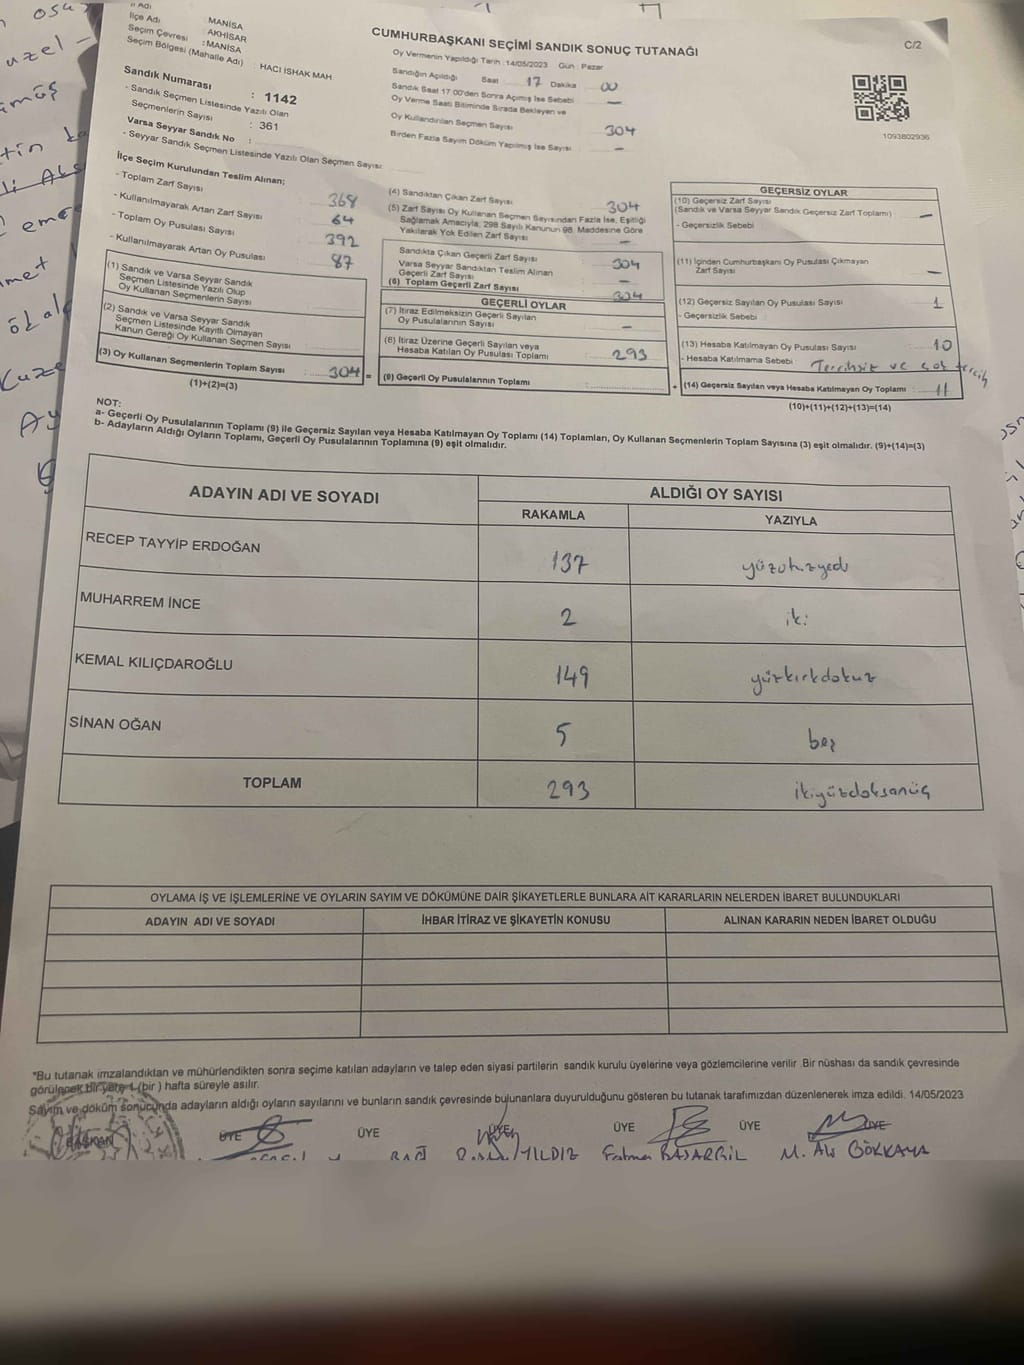 İlçe Adı : MANİSA
Seçim Çevresi : AKHİSAR
Seçim Bölgesi (Mahalle Adı) : MANİSA
HACI ISHAK MAH
Sandık Numarası : 1142
- Sandık Seçmen Listesinde Yazılı Olan
Seçmenlerin Sayısı : 361
Varsa Seyyar Sandık No :
- Seyyar Sandık Seçmen Listesinde Yazılı Olan Seçmen Sayısı:
CUMHURBAŞKANI SEÇİMİ SANDIK SONUÇ TUTANAĞI
C/2
Oy Vermenin Yapıldığı Tarih :14/05/2023 Gün : Pazar
Sandığın Açıldığı Saat 17 Dakika 00
Sandık Saat 17:00'den Sonra Açımış İse Sebebi —
Oy Verme Saati Bitiminde Sırada Bekleyen ve
Oy Kullandırılan Seçmen Sayısı 304
Birden Fazla Sayım Döküm Yapılmış İse Sayısı —
1093802936
İlçe Seçim Kurulundan Teslim Alınan;
- Toplam Zarf Sayısı 368
- Kullanılmayarak Artan Zarf Sayısı 64
- Toplam Oy Pusulası Sayısı 392
- Kullanılmayarak Artan Oy Pusulası 87
(1) Sandık ve Varsa Seyyar Sandık
Seçmen Listesinde Yazılı Olup
Oy Kullanan Seçmenlerin Sayısı
(2) Sandık ve Varsa Seyyar Sandık
Seçmen Listesinde Kayıtlı Olmayan
Kanun Gereği Oy Kullanan Seçmen Sayısı
(3) Oy Kullanan Seçmenlerin Toplam Sayısı : 304 =
(1)+(2)=(3)
(4) Sandıktan Çıkan Zarf Sayısı 304
(5) Zarf Sayısı Oy Kullanan Seçmen Sayısından Fazla İse, Eşitliği
Sağlamak Amacıyla, 298 Sayılı Kanunun 98. Maddesine Göre
Yakılarak Yok Edilen Zarf Sayısı —
Sandıkta Çıkan Geçerli Zarf Sayısı 304
Varsa Seyyar Sandıktan Teslim Alınan
Geçerli Zarf Sayısı —
(6) Toplam Geçerli Zarf Sayısı 304
GEÇERLİ OYLAR
(7) İtiraz Edilmeksizin Geçerli Sayılan
Oy Pusulalarının Sayısı —
(8) İtiraz Üzerine Geçerli Sayılan veya
Hesaba Katılan Oy Pusulası Toplamı 293
(9) Geçerli Oy Pusulalarının Toplamı : +
GEÇERSİZ OYLAR
(10) Geçersiz Zarf Sayısı
(Sandık ve Varsa Seyyar Sandık Geçersiz Zarf Toplamı) —
- Geçersizlik Sebebi
(11) İçinden Cumhurbaşkanı Oy Pusulası Çıkmayan
Zarf Sayısı —
(12) Geçersiz Sayılan Oy Pusulası Sayısı 1
- Geçersizlik Sebebi
(13) Hesaba Katılmayan Oy Pusulası Sayısı 10
- Hesaba Katılmama Sebebi : Tercihsiz ve çok tercih
(14) Geçersiz Sayılan veya Hesaba Katılmayan Oy Toplamı : 11
(10)+(11)+(12)+(13)=(14)
NOT:
a- Geçerli Oy Pusulalarının Toplamı (9) ile Geçersiz Sayılan veya Hesaba Katılmayan Oy Toplamı (14) Toplamları, Oy Kullanan Seçmenlerin Toplam Sayısına (3) eşit olmalıdır. (9)+(14)=(3)
b- Adayların Aldığı Oyların Toplamı, Geçerli Oy Pusulalarının Toplamına (9) eşit olmalıdır.
ADAYIN ADI VE SOYADI
ALDIĞI OY SAYISI
RAKAMLA YAZIYLA
RECEP TAYYİP ERDOĞAN 137 yüzotuzyedi
MUHARREM İNCE 2 iki
KEMAL KILIÇDAROĞLU 149 yüzkırkdokuz
SİNAN OĞAN 5 beş
TOPLAM 293 ikiyüzdoksanüç
OYLAMA İŞ VE İŞLEMLERİNE VE OYLARIN SAYIM VE DÖKÜMÜNE DAİR ŞİKAYETLERLE BUNLARA AİT KARARLARIN NELERDEN İBARET BULUNDUKLARI
ADAYIN ADI VE SOYADI İHBAR İTİRAZ VE ŞİKAYETİN KONUSU ALINAN KARARIN NEDEN İBARET OLDUĞU
*Bu tutanak imzalandıktan ve mühürlendikten sonra seçime katılan adayların ve talep eden siyasi partilerin sandık kurulu üyelerine veya gözlemcilerine verilir .Bir nüshası da sandık çevresinde
görülecek bir yere 1 (bir ) hafta süreyle asılır.
Sayım ve döküm sonucunda adayların aldığı oyların sayılarını ve bunların sandık çevresinde bulunanlara duyurulduğunu gösteren bu tutanak tarafımızdan düzenlenerek imza edildi. 14/05/2023
BAŞKAN ÜYE ÜYE ÜYE ÜYE ÜYE ÜYE
YILDIZ Fatma BAŞARGİL M. Ali GÖKKAYA